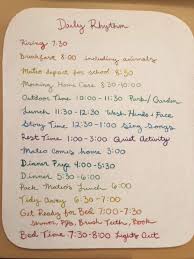 Daily Rhythm
Rising 7:30
Breakfast 8:00 including animals
Mateo depart for school 8:30
Morning Home Care 8:30-10:00
Outdoor Time 10:00-11:30 Park/Garden
Lunch 11:30-12:30 Wash Hands & Face
Story Time 12:30-1:00 Sing Songs
Rest Time 1:00-3:00 Quiet Activity
Mateo comes home 3:00
Dinner Prep 4:00-5:30
Dinner 5:30-6:00
Pack Mateo's Lunch 6:00
Tidy Away 6:30-7:00
Get Ready for Bed 7:00-7:30
Shower, PJs, Brush Teeth, Book
Bed Time 7:30-8:00 Lights Out